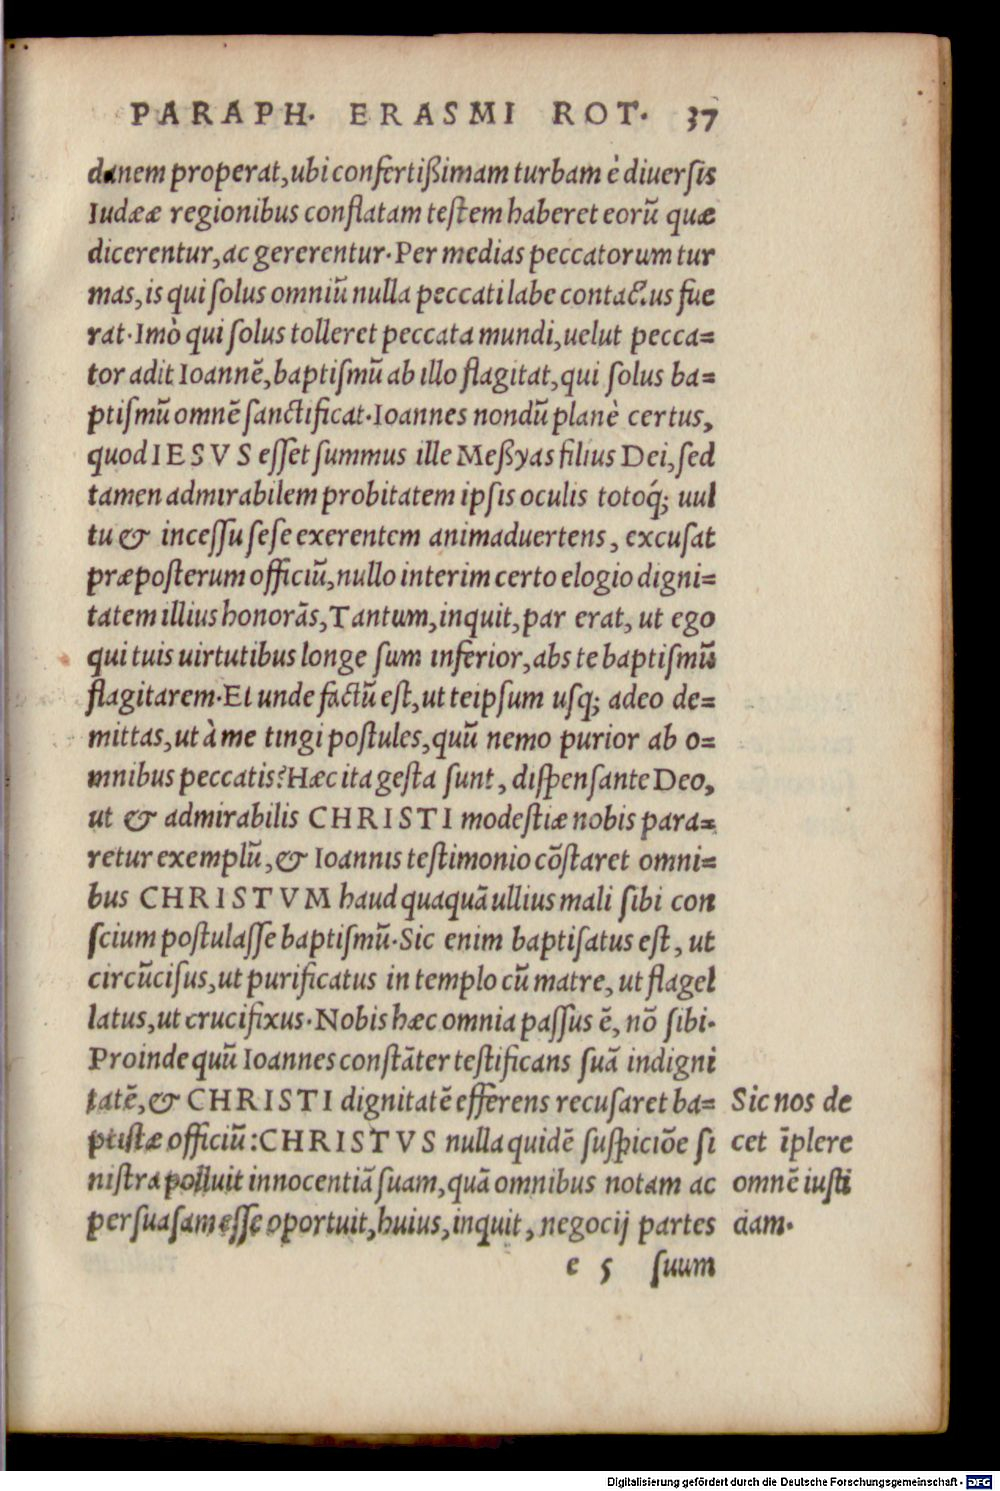 PARAPH. ERASMI ROT. 37
danem properat, ubi confertißimam turbam è diuersis
Iudææ regionibus conflatam testem haberet eorũ quæ
dicerentur, ac gererentur. Per medias peccatorum tur
mas, is qui solus omniũ nulla peccati labe contactus fue
rat. Imò qui solus tolleret peccata mundi, uelut pecca=
tor adit Ioannẽ, baptismũ ab illo flagitat, qui solus ba=
ptismũ omnẽ sanctificat. Ioannes nondũ planè certus,
quod IESVS esset summus ille Meßyas filius Dei, sed
tamen admirabilem probitatem ipsis oculis totoq́; uul
tu & incessu sese exerentem animaduertens, excusat
præposterum officiũ, nullo interim certo elogio digni=
tatem illius honorãs, Tantum, inquit, par erat, ut ego
qui tuis uirtutibus longe sum inferior, abs te baptismũ
flagitarem. Et unde factũ est, ut teipsum usq; adeo de=
mittas, ut à me tingi postules, quũ nemo purior ab o=
mnibus peccatis? Hæc ita gesta sunt, dispensante Deo,
ut & admirabilis CHRISTI modestiæ nobis para=
retur exemplũ, & Ioannis testimonio cõstaret omni=
bus CHRISTVM haud quaquã ullius mali sibi con
scium postulasse baptismũ. Sic enim baptisatus est, ut
circũcisus, ut purificatus in templo cũ matre, ut flagel
latus, ut crucifixus. Nobis hæc omnia passus ẽ, nõ sibi.
Proinde quũ Ioannes constãter testificans suã indigni
tatẽ, & CHRISTI dignitatẽ efferens recusaret ba=
ptistæ officiũ: CHRISTVS nulla quidẽ suspiciõe si
nistra polluit innocentiã suam, quã omnibus notam ac
persuasam esse oportuit, huius, inquit, negocij partes
e 5 suum
Sic nos de
cet ĩplere
omnẽ iusti
ciam.
Digitalisierung gefördert durch die Deutsche Forschungsgemeinschaft - DFG